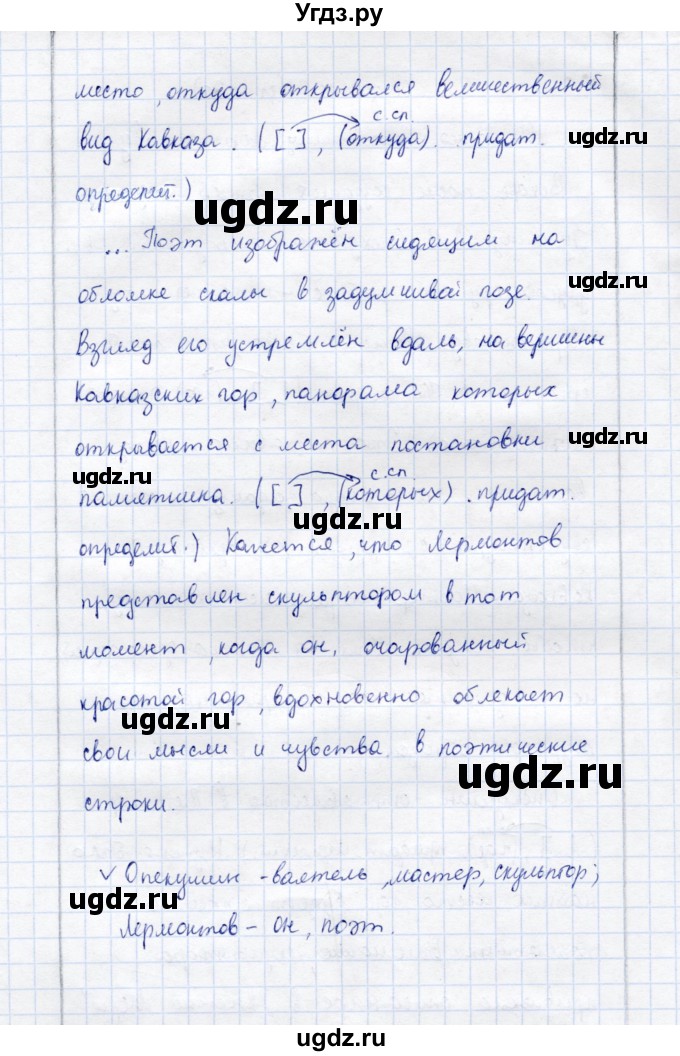 Угдз.ру
место, откуда открывался величественный
с.сл.
вид Кавказа. ([ ], (откуда). придат.
ugdz.ru
определит.)
ugdz.ru
... Поэт изображён сидящим на
обломке скалы в задумчивой позе.
ugdz.ru
Взгляд его устремлён вдаль, на вершины
Кавказских гор, панорама которых
открывается с места постановки
ugdz.ru
ugdz.ru
с.сл.
памятника. ([ ], (которых). придат.
ugdz.ru
определит.) Кажется, что Лермонтов
представлен скульптором в тот
момент, когда он, очарованный
красотой гор, вдохновенно облекает
ugdz.ru
свои мысли и чувства в поэтические
ugdz.ru
строки.
v Опекушин - ваятель, мастер, скульптор;
ugdz.ru
Лермонтов - он, поэт.
ugdz.ru
ugdz.ru